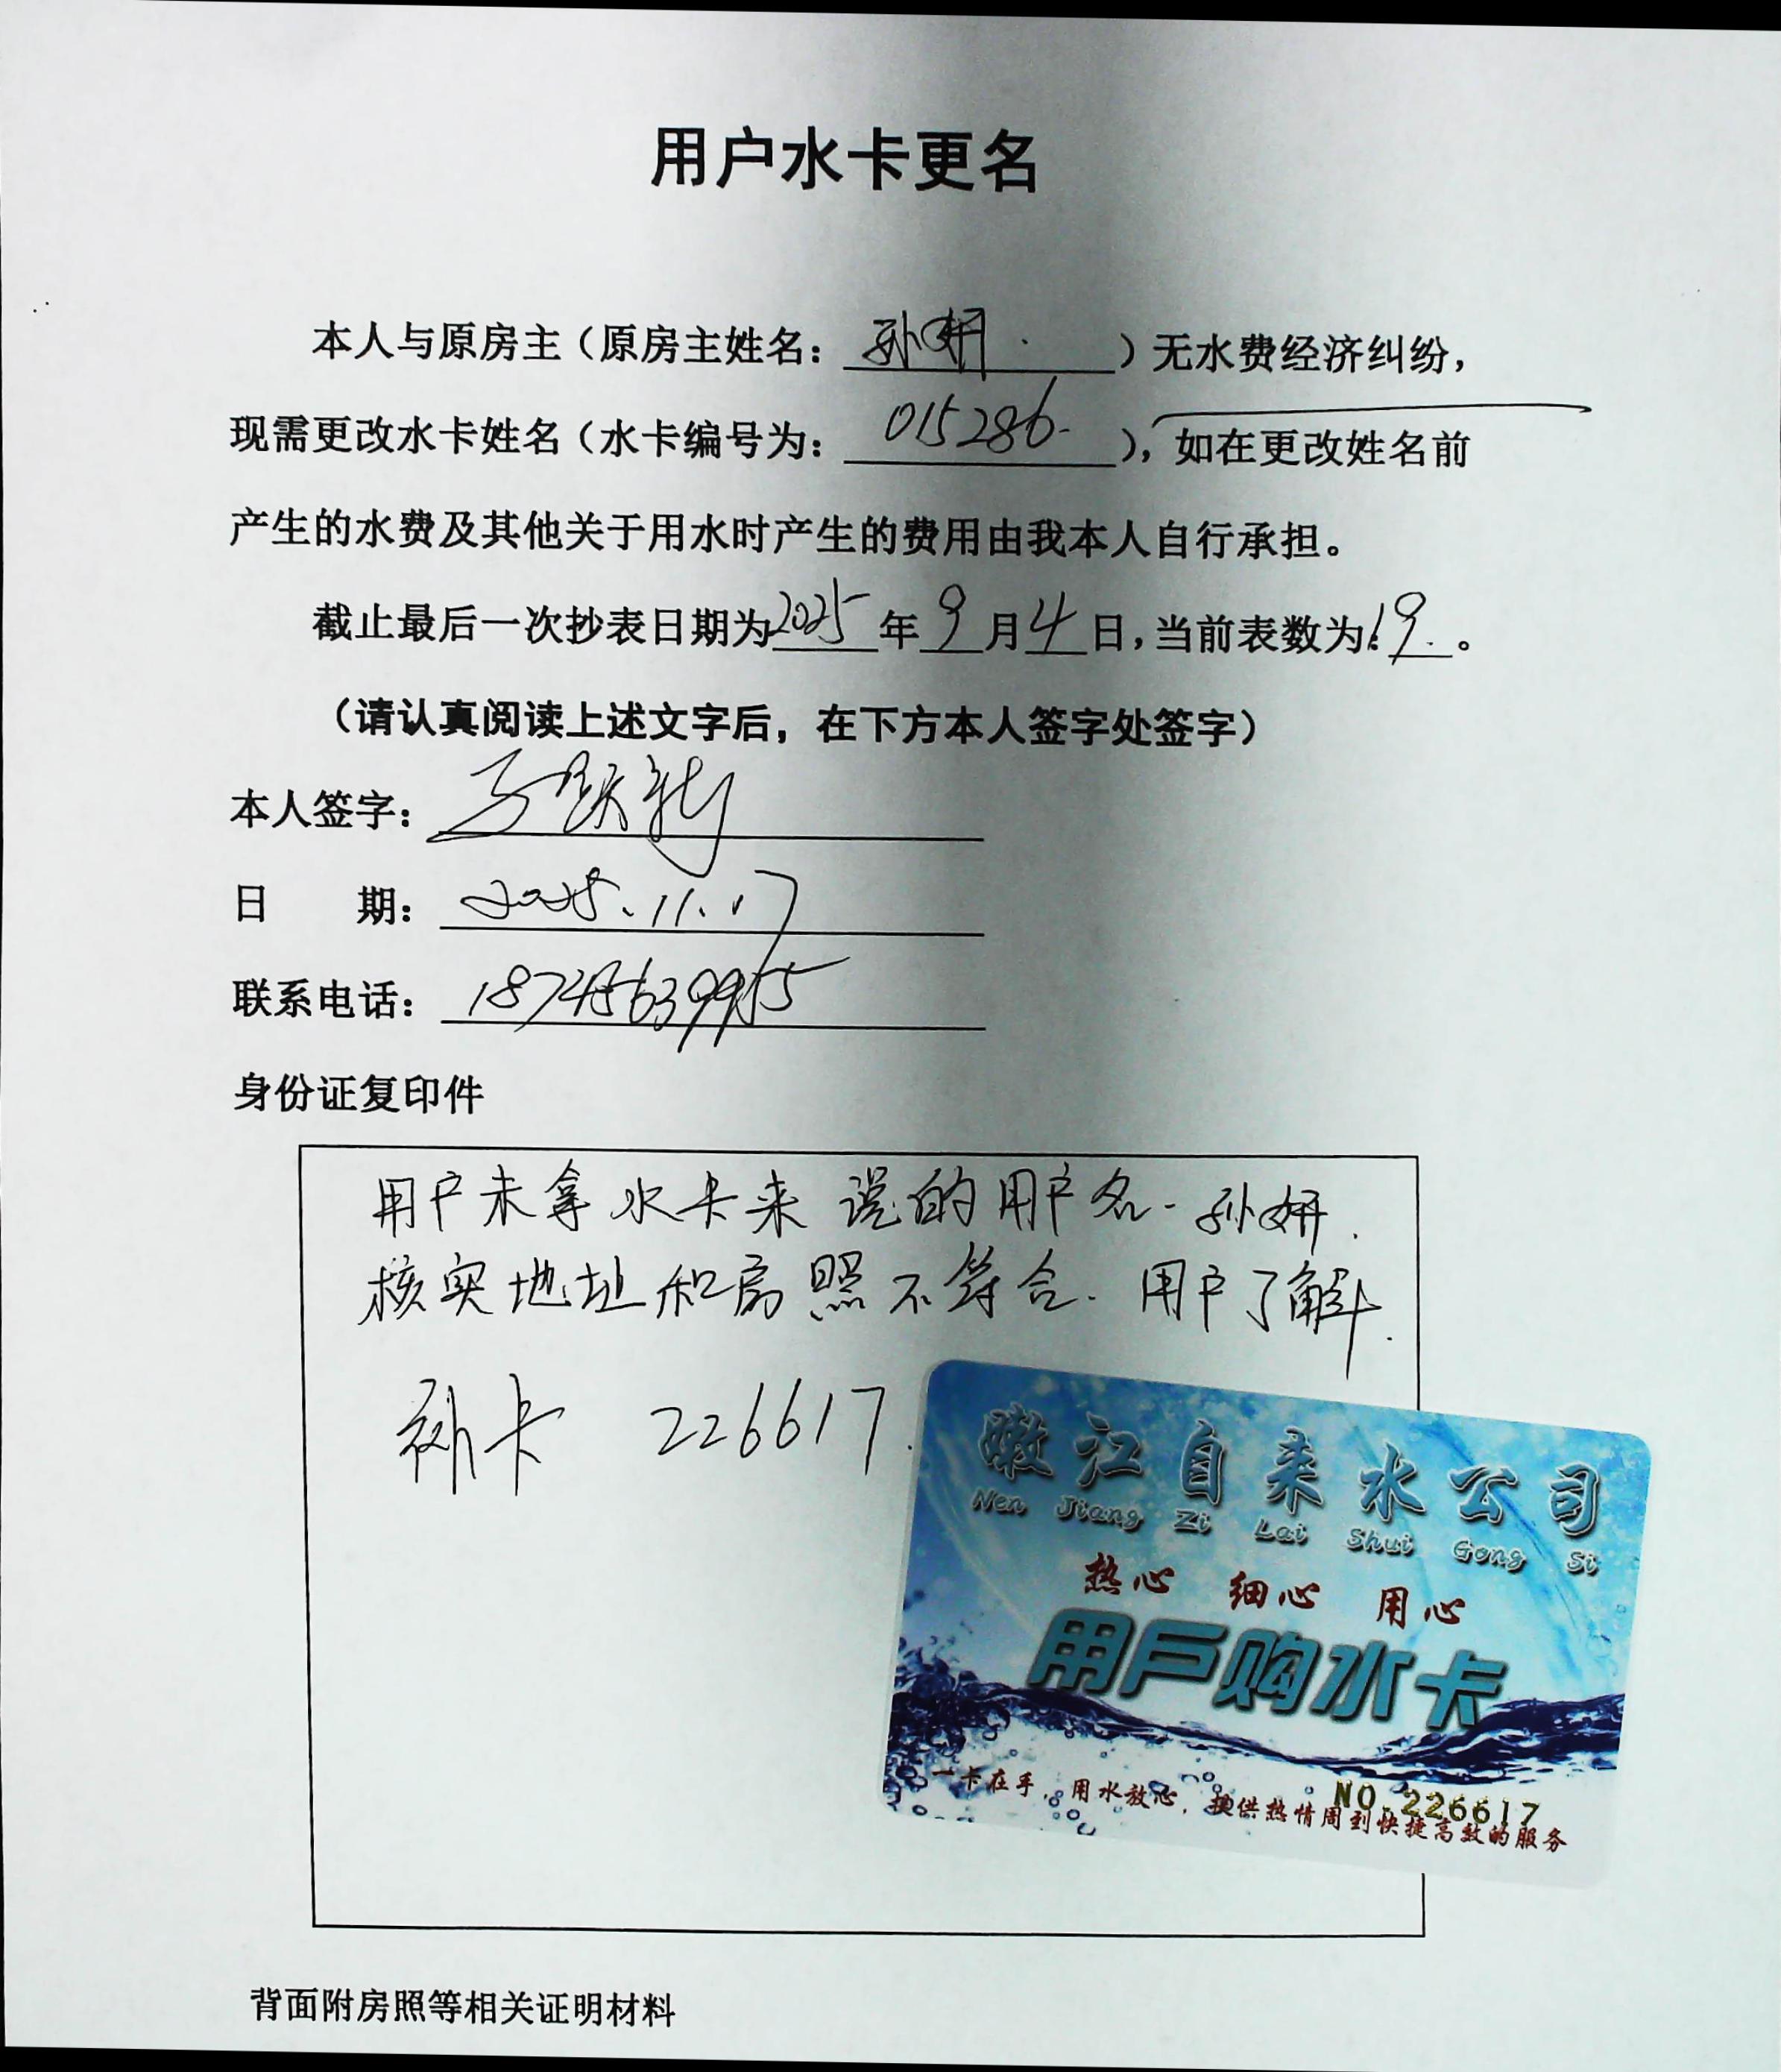 用户水卡更名
本人与原房主（原房主姓名：孙妍）无水费经济纠纷，
现需更改水卡姓名（水卡编号为：015286），如在更改姓名前
产生的水费及其他关于用水时产生的费用由我本人自行承担。
截止最后一次抄表日期为2025年9月4日，当前表数为：19。
（请认真阅读上述文字后，在下方本人签字处签字）
本人签字：
日 期：2025.11.17
联系电话：
身份证复印件
用户未拿水卡来 说的用户名-孙妍.
核实地址和房照不符合. 用户了解.
补卡 226617.
嫩江自来水公司
Nen Jiang Zi Lai Shui Gong Si
热心 细心 用心
用户购水卡
NO.226617
一卡在手，用水放心，提供热情周到快捷高效的服务
背面附房照等相关证明材料